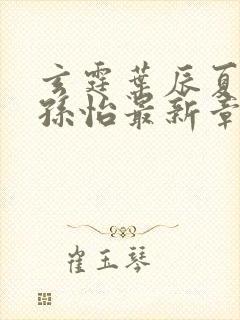 玄霆葉辰夏
孫怡最新章
崔玉琴